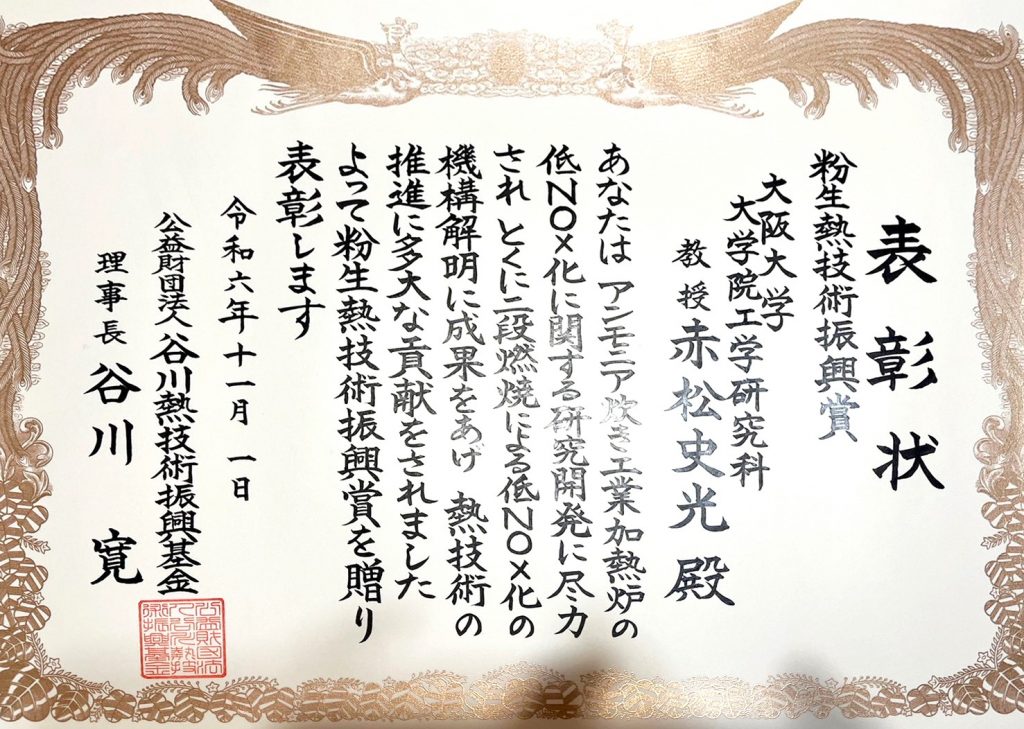 表彰状
粉生熱技術振興賞
大阪大学
大学院工学研究科
教授 赤松史光 殿
あなたは アンモニア炊き工業加熱炉の
低NOx化に関する研究開発に尽力
され とくに二段燃焼による低NOx化の
機構解明に成果をあげ 熱技術の
推進に多大な貢献をされました
よって粉生熱技術振興賞を贈り
表彰します
令和六年十一月一日
公益財団法人谷川熱技術振興基金
理事長 谷川 寛